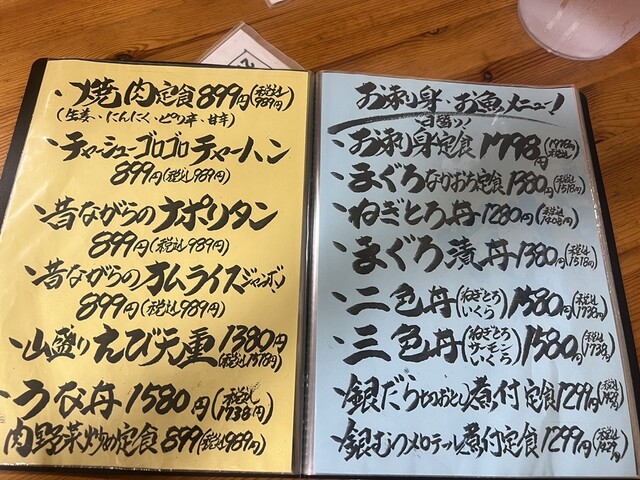 、焼肉定食 899円(税込989円)
(生姜、にんにく、ピリ辛、甘辛)
、チャーシューゴロゴロチャーハン
899円(税込989円)
、昔ながらのナポリタン
899円(税込989円)
、昔ながらのオムライス(ジャンボ)
899円(税込989円)
、山盛りえび天重 1380円(税込1518円)
、うな丼 1580円(税込1738円)
肉野菜炒め定食 899(税込989円)
お刺身・お魚メニュー!
、お刺身定食 1798円(1978円税込)
、まぐろなかおち定食 1380円(税込1518円)
、ねぎとろ丼 1280円(税込1408円)
、まぐろ漬丼 1380円(税込1518円)
、二色丼(ねぎとろ いくら) 1580円(税込1738円)
、三色丼(ねぎとろ サーモン いくら) 1580円(税込1738)
、銀だら煮付定食 1299円
、銀むつメロテール煮付定食 1299円